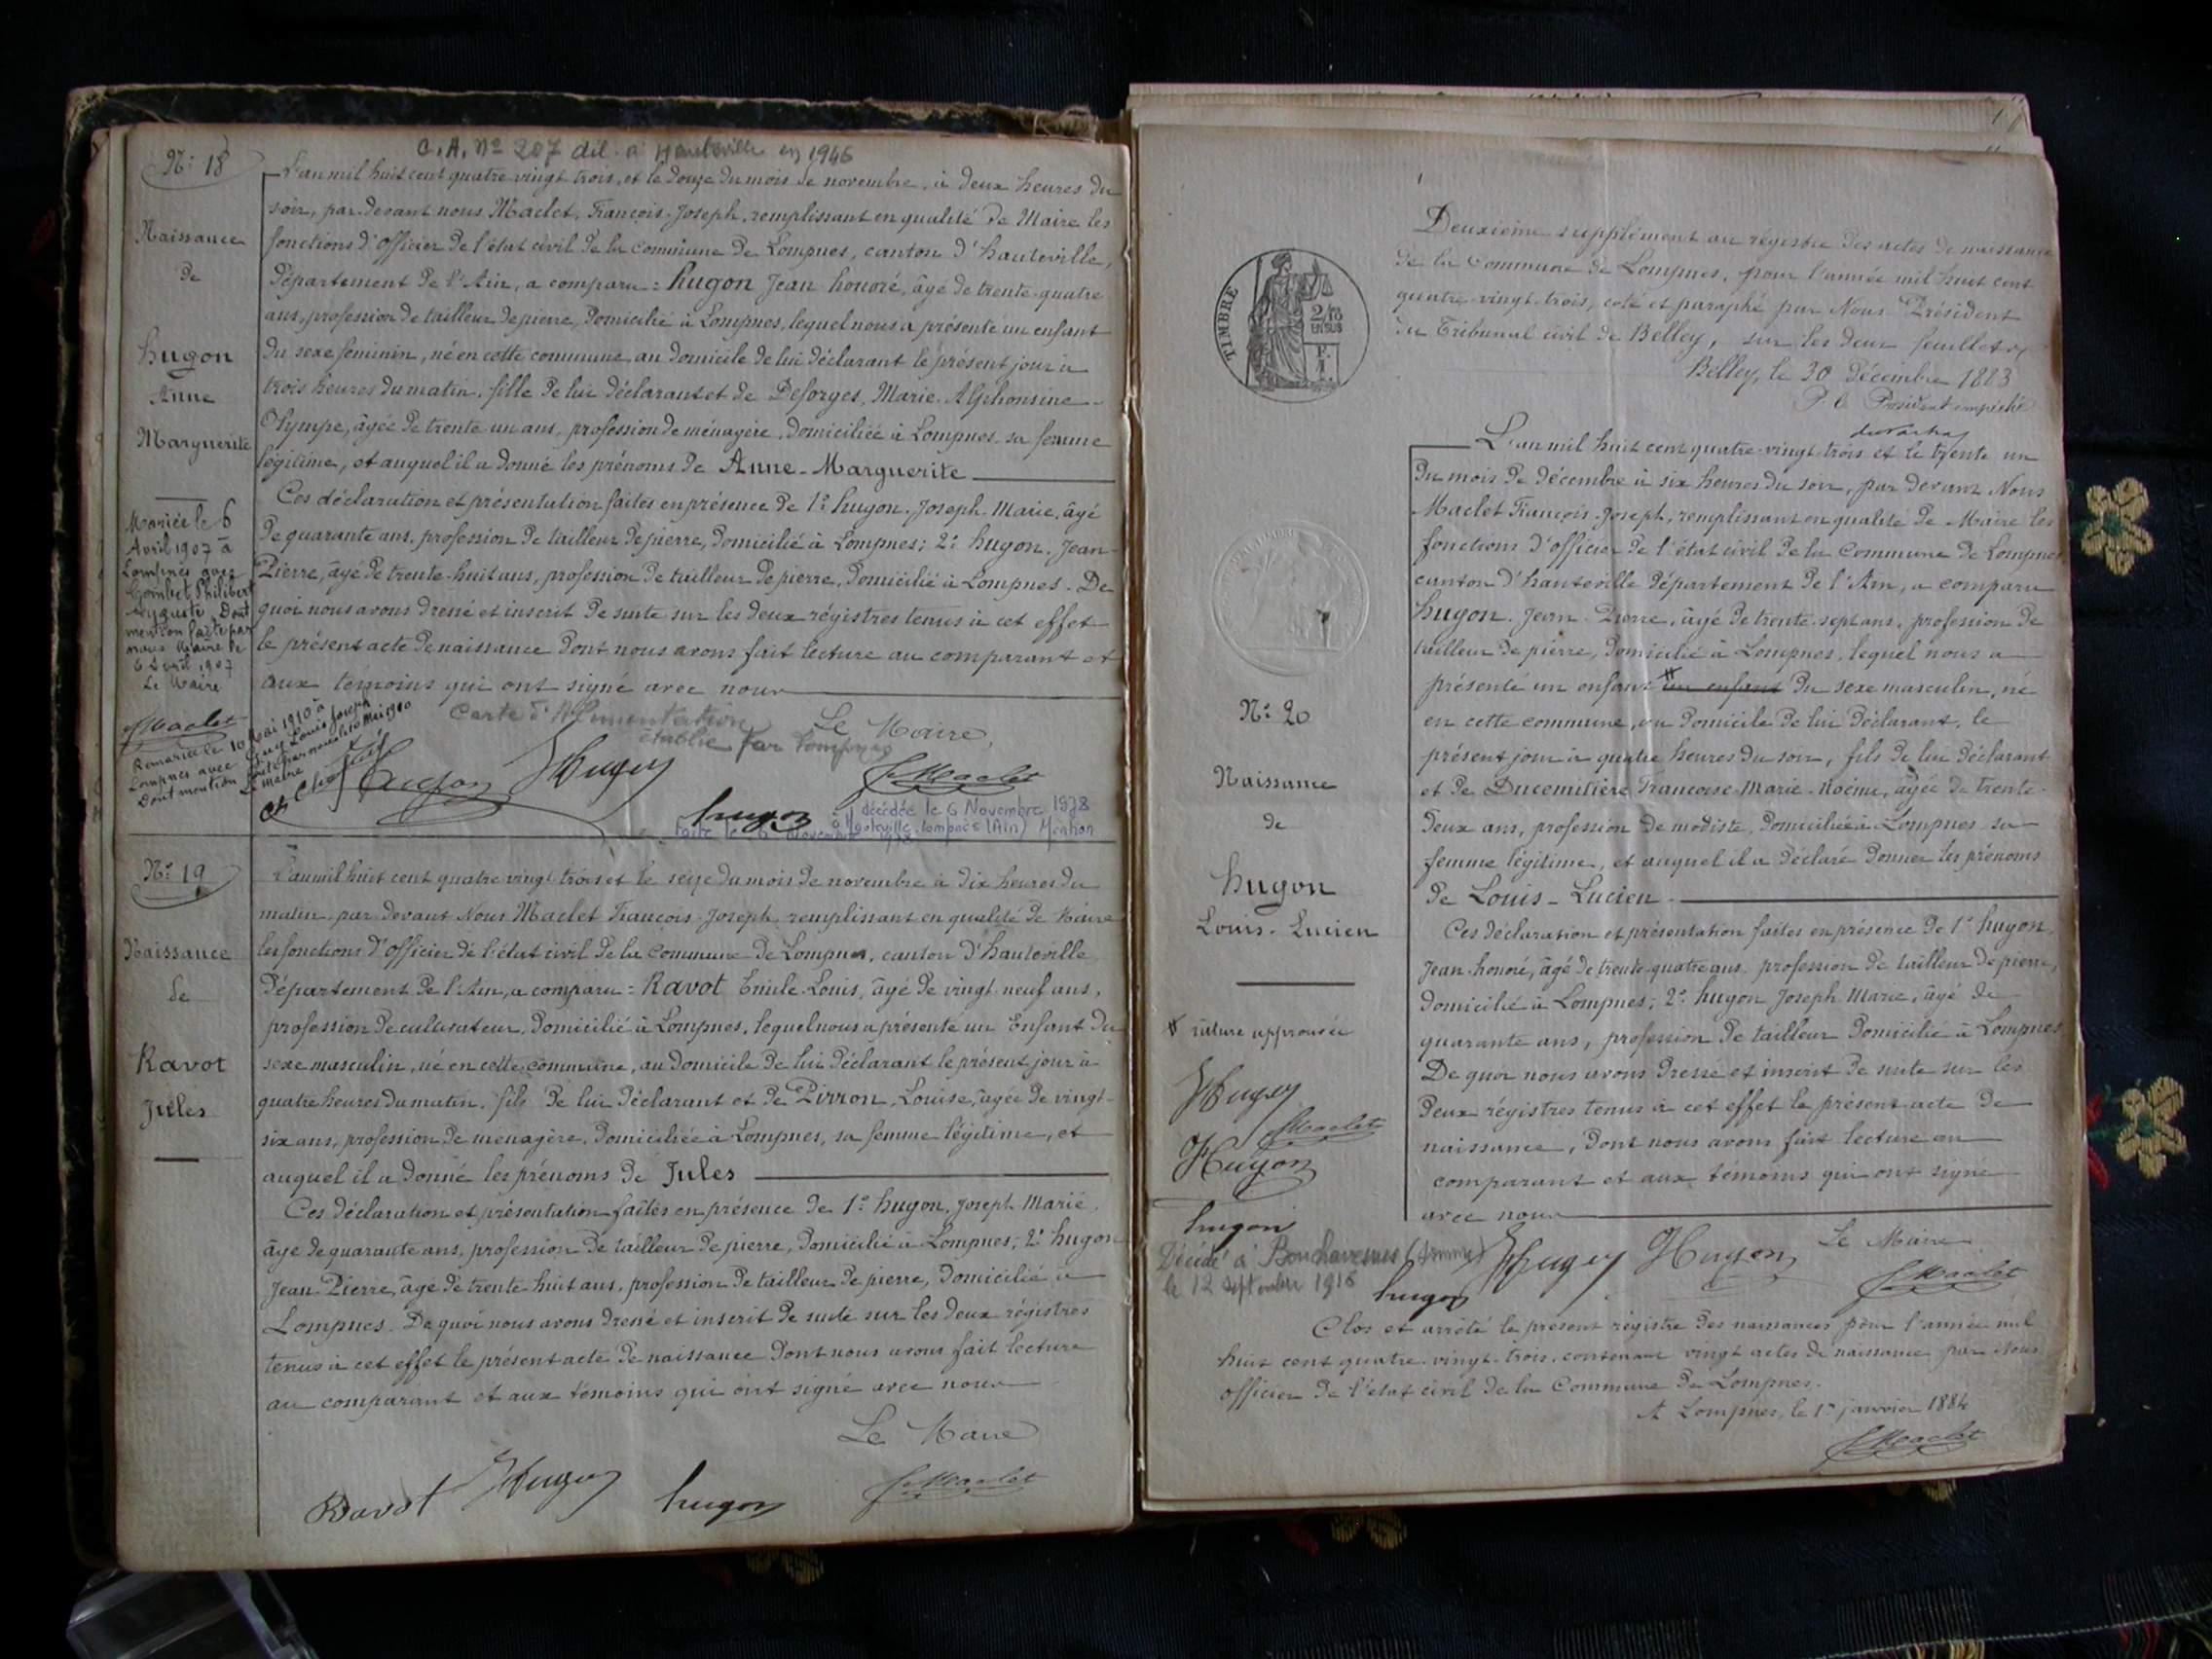 C.A. No 207 dél. à Hauteville en 1946
No 18
Naissance
de
hugon
Anne
Marguerite
Mariée le 6
Avril 1907 à
Lompnes avec
Gombet Philibert
Auguste. Dont
mention faite par
nous Maire le
6 Avril 1907
Le Maire
fMaclet
Remariée le 10 Mai 1910 à
Lompnes avec Louis Joseph
Dont mention faite par nous le 10 Mai 1910
Le Maire
L'an mil huit cent quatre-vingt trois, et le douze du mois de novembre, à deux heures du
soir, par devant nous Maclet, François-Joseph, remplissant en qualité de Maire les
fonctions d'officier de l'état civil de la commune de Lompnes, canton d'hauteville,
Département de l'Ain, a comparu : hugon Jean honoré, âgé de trente-quatre
ans, profession de tailleur de pierre, domicilié à Lompnes, lequel nous a présenté un enfant
du sexe feminin, né en cette commune, au domicile de lui déclarant le présent jour à
trois heures du matin, fille de lui déclarant et de Desforges, Marie-Alphonsine-
Olympe, âgée de trente un ans, profession de ménagère, domiciliée à Lompnes, sa femme
légitime, et auquel il a donné les prénoms de Anne-Marguerite
Ces déclaration et présentation faites en présence de 1° hugon. Joseph-Marie, âgé
de quarante ans, profession de tailleur de pierre, domicilié à Lompnes; 2° hugon. Jean-
Pierre, âgé de trente-huit ans, profession de tailleur de pierre, domicilié à Lompnes. De
quoi nous avons dressé et inscrit de suite sur les deux régistres tenus à cet effet
le présent acte de naissance dont nous avons fait lecture au comparant et
aux témoins qui ont signé avec nous
Carte d'Alimentation
établie par Lompnes
Le Maire,
Hugon
JHugon
hugon
fMaclet
décédée le 6 Novembre 1978
à Hauteville-Lompnes (Ain) Mention
faite le 6 Novembre 1978
No 19
Naissance
de
Ravot
Jules
L'an mil huit cent quatre vingt-trois et le seize du mois de novembre à dix heures du
matin, par devant Nous Maclet François-Joseph, remplissant en qualité de Maire
les fonctions d'officier de l'état civil de la commune de Lompnes, canton d'hauteville
Département de l'Ain, a comparu = Ravot Emile-Louis, âgé de vingt neuf ans,
profession de cultivateur, domicilié à Lompnes, lequel nous a présenté un Enfant du
sexe masculin, né en cette commune, au domicile de lui déclarant le présent jour à
quatre heures du matin, fils de lui déclarant et de Pirron, Louise, âgée de vingt-
six ans, profession de menagère, domiciliée à Lompnes, sa femme légitime, et
auquel il a donné les prénoms de Jules
Ces déclaration et présentation faites en présence de 1° hugon, Joseph Marie,
âgé de quarante ans, profession de tailleur de pierre, domicilié à Lompnes; 2° hugon
Jean-Pierre, âgé de trente-huit ans, profession de tailleur de pierre, domicilié à
Lompnes. De quoi nous avons dressé et inscrit de suite sur les deux régistres
tenus à cet effet le présent acte de naissance dont nous avons fait lecture
au comparant et aux témoins qui ont signé avec nous
Le Maire
Ravot
JHugon
hugon
fMaclet
TIMBRE
2/10
EN SUS
Deuxième supplément au régistre des actes de naissance
de la Commune de Lompnes, pour l'année mil huit cent
quatre-vingt-trois, coté et paraphé par Nous Président
du Tribunal civil de Belley, sur les deux feuillets
Belley, le 30 Décembre 1883
P. le Président empêché
No 20
Naissance
de
hugon
Louis-Lucien
rature approuvée
JHugon
fMaclet
Hugon
hugon
Décédé à Bouchavesnes (Somme)
le 12 septembre 1916
L'an mil huit cent quatre-vingt-trois et le trente un
du mois de décembre à six heures du soir, par devant Nous
Maclet François-Joseph, remplissant en qualité de Maire les
fonctions d'officier de l'état civil de la Commune de Lompnes
canton d'hauteville département de l'Ain, a comparu
hugon. Jean-Pierre, âgé de trente-sept ans, profession de
tailleur de pierre, domicilié à Lompnes, lequel nous a
présenté un enfant un enfant du sexe masculin, né
en cette commune, au domicile de lui déclarant, le
présent jour à quatre heures du soir, fils de lui déclarant
et de Ducemilière Françoise-Marie-Noémie, âgée de trente-
deux ans, profession de modiste, domiciliée à Lompnes sa
femme légitime, et auquel il a déclaré donner les prénoms
de Louis-Lucien.
Ces déclaration et présentation faites en présence de 1° hugon,
Jean honoré, âgé de trente-quatre ans, profession de tailleur de pierre,
domicilié à Lompnes; 2° hugon Joseph Marie, âgé de
quarante ans, profession de tailleur domicilié à Lompnes
De quoi nous avons dressé et inscrit de suite sur les
deux régistres tenus à cet effet le présent acte de
naissance, dont nous avons fait lecture au
comparant et aux témoins qui ont signé
avec nous
Le Maire
hugon
JHugon
Hugon
fMaclet
Clos et arrêté le présent régistre des naissances pour l'année mil
huit cent quatre-vingt-trois, contenant vingt actes de naissance par Nous
officier de l'état civil de la Commune de Lompnes.
A Lompnes, le 1er janvier 1884
fMaclet